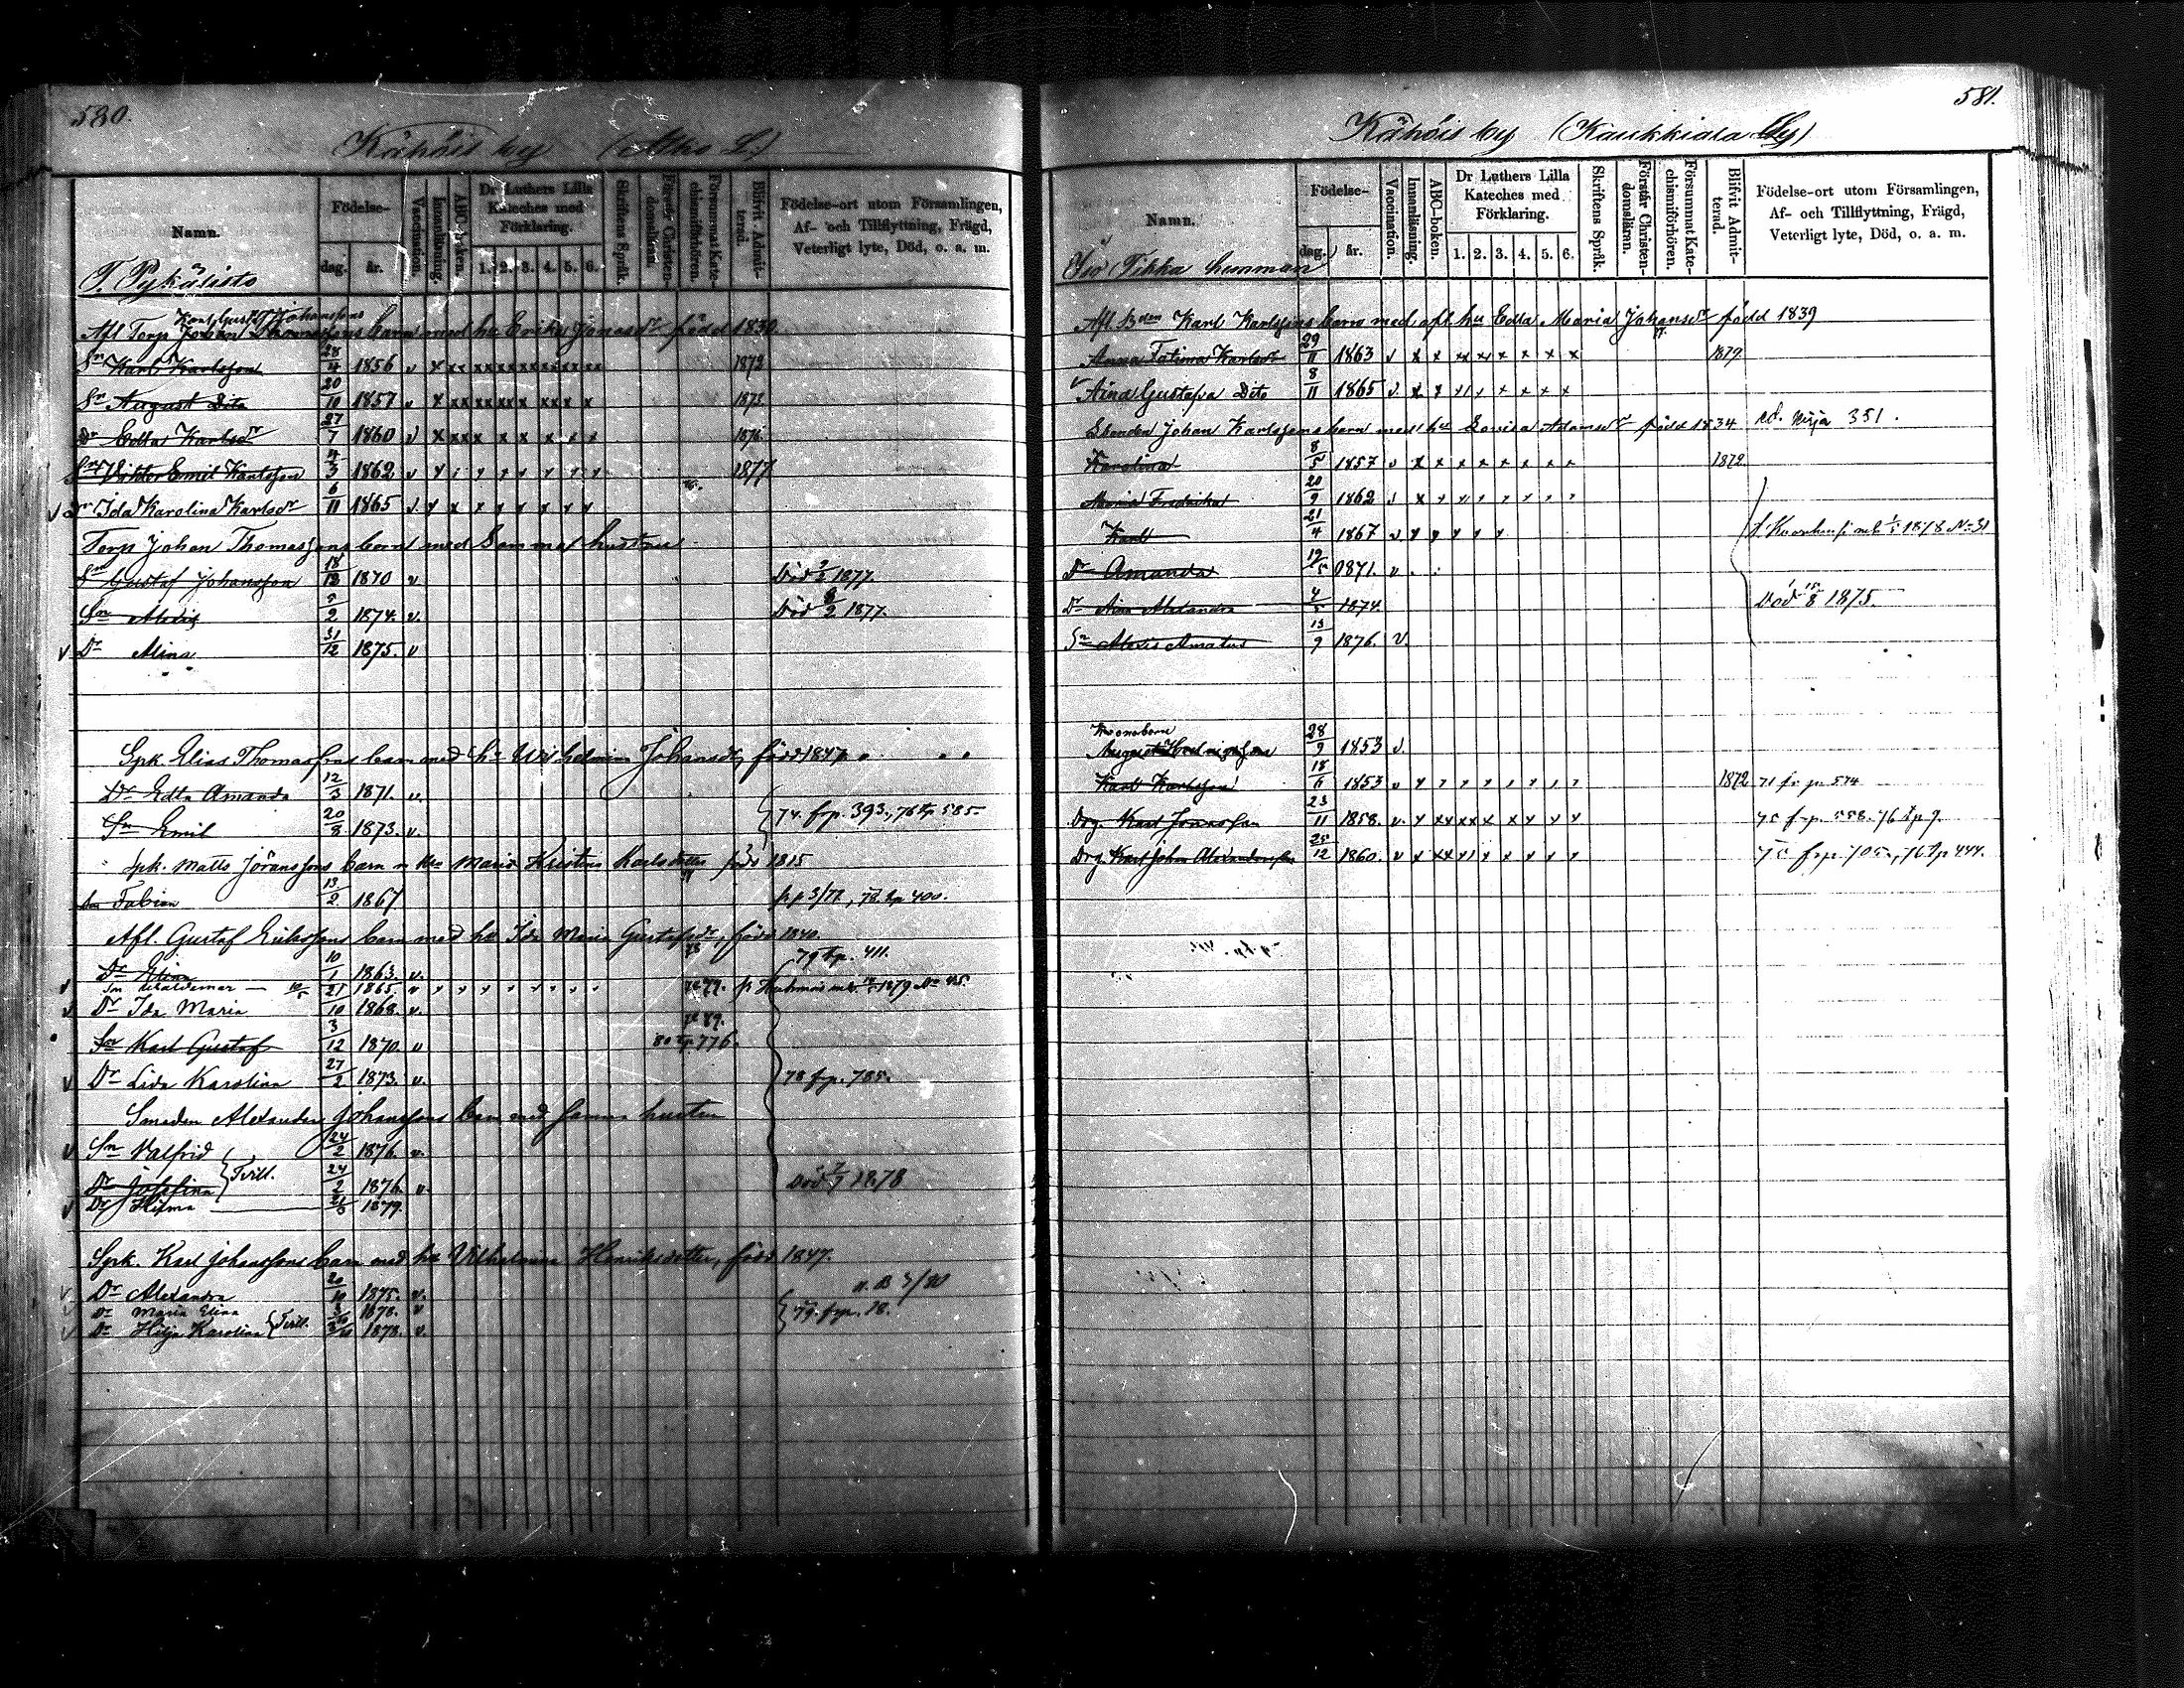 580.
Kähöis by (Alho L.)
Namn.
Födelse-
dag. år.
Vaccination.
Innanläsning.
ABC-boken.
Dr Luthers Lilla Kateches med Förklaring.
1. 2. 3. 4. 5. 6.
Skriftens Språk.
Förstår Christendomsläran.
Försummat Katechismiförhören.
Blifvit Admitterad.
Födelse-ort utom Församlingen, Af- och Tillflyttning, Frägd, Veterligt lyte, Död, o. a. m.
T. Pykälistö
Karl Gust. Johanssons
Afl Torp Johan Thomassons barn med hu Erika Jonasdr född 1830
Sn Karl Karlsson 28/4 1856 v 1873
Sn August Dito 20/10 1857 v 1873
Dr Edla Karlsdr 27/7 1860 v 1876
Sn Viktor Emil Karlsson 4/3 1862 v 1877
v Dr Ida Karolina Karlsdr 6/11 1865 v
Torp Johan Thomassons barn med Samma hustru
Sn Gustaf Johansson 18/12 1870 v Död 2/2 1877.
Sn Alexis 5/2 1874. v. Död 8/2 1877.
v Dr Alina 31/12 1875. v
Spk. Elias Thomassons barn med hu Vilhelmina Johansdr, född 1847
Dr Edla Amanda 12/3 1871. v.
Sn Emil 20/8 1873. v. 74. frp. 393., 76 tp 585
Spk. Matts Jöranssons barn m hu Maria Kristina Karlsdotter född 1815
Sn Fabian 13/2. 1867 pp 3/77, 78 tp 400.
Afl. Gustaf Erikssons barn med hu Ida Maria Gustafsdr, född 1840.
Dr Elina 10/1 1863. v. 79 tp. 411.
v Sn Waldemar 10/5 1865. v 79. fr Kuhmois m.b. 1879 No 45.
v Dr Ida Maria 21/10 1868. v.
Sn Karl Gustaf 3/12 1870. v 80 tp. 776.
v Dr Lida Karolina 27/2 1873. v. 78 frp. 785.
Smeden Alexander Johanssons barn med samma hustru
v Sn Valfrid 24/2 1876. v. Tvill.
Dr Josefina 24/2 1876. v. Död 7/7 1878
v Dr Hilma 21/5 1879.
Spk. Karl Johanssons barn med hu Vilhelmina Henriksdotter, född 1847.
v Dr Alexandra 20/10 1875. v. n. B 3/80
v Dr Maria Elina 3/10 1878. v Tvill. 79. frp. 18.
v Dr Hilja Karolina 3/10 1878. v.
581.
Kähöis by (Kaukkiala By)
Namn.
Födelse-
dag. år.
Vaccination.
Innanläsning.
ABC-boken.
Dr Luthers Lilla Kateches med Förklaring.
1. 2. 3. 4. 5. 6.
Skriftens Språk.
Förstår Christendomsläran.
Försummat Katechismiförhören.
Blifvit Admitterad.
Födelse-ort utom Församlingen, Af- och Tillflyttning, Frägd, Veterligt lyte, Död, o. a. m.
Iso Tikka hemman
Afl Bden Karl Karlssons barn med afl hu Edla Maria Johansdr född 1839
Anna Fatima Karlsdr 29/11 1863 v 1879.
v Aina Gustafva Dito 8/11 1865 v.
Skonden Johan Karlssons barn med hu Lovisa Adamsdr född 1834 351.
Karolina 8/5 1857 v 1872
Maria Fredrika 20/9 1862 v
Karl 21/4 1867 v. 1878 No 31
Dr Amanda 12/5 1871. v.
Dr Aina Alexandra 4/5 1874. Död 15/8 1875.
Sn Alexis Amatus 13/9 1876. v.
August 28/9 1853 v.
Karl Karlsson 18/6 1853 v 1872 71 fr p. 574
Drg. Karl Jonasson 23/11 1858. v. 75 frp. 558. 76 tp 9.
Drg. Karl Johan Alexandersson 25/12 1860. v 75 frp. 705., 76 tp 444.